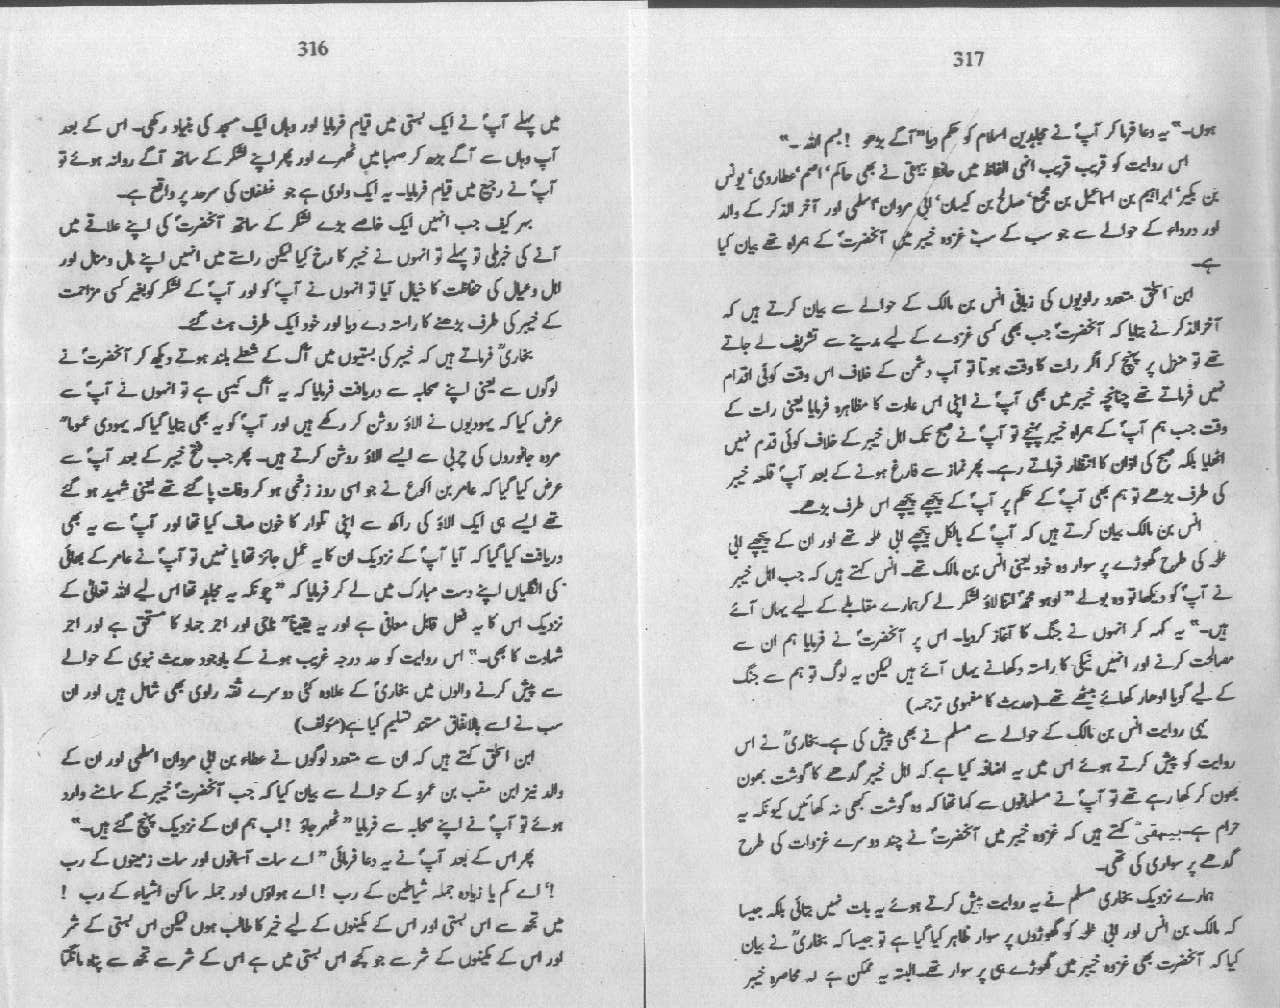 316
میں پہلے آپؐ نے ایک بستی میں قیام فرمایا اور وہاں ایک مسجد کی بنیاد رکھی۔ اس کے بعد
آپ وہاں سے آگے بڑھ کر صہبا میں ٹھہرے اور پھر اپنے لشکر کے ساتھ آگے روانہ ہوئے تو
آپؐ نے رجیع میں قیام فرمایا۔ یہ ایک وادی ہے جو غطفان کی سرحد پر واقع ہے۔
بہر کیف جب انہیں ایک خاصے بڑے لشکر کے ساتھ آنحضرتؐ کی اپنے علاقے میں
آنے کی خبر ملی تو پہلے تو انہوں نے خیبر کا رخ کیا لیکن راستے میں انہیں اپنے مال ومنال اور
اہل وعیال کی حفاظت کا خیال آیا تو انہوں نے آپؐ کو اور آپؐ کے لشکر کو بغیر کسی مزاحمت
کے خیبر کی طرف بڑھنے کا راستہ دے دیا اور خود ایک طرف ہٹ گئے۔
بخاریؒ فرماتے ہیں کہ خیبر کی بستیوں میں آگ کے شعلے بلند ہوتے دیکھ کر آنحضرتؐ نے
لوگوں سے یعنی اپنے صحابہ سے دریافت فرمایا کہ یہ آگ کیسی ہے تو انہوں نے آپؐ سے
عرض کیا کہ یہودیوں نے الاؤ روشن کر رکھے ہیں اور آپؐ کو یہ بھی بتایا گیا کہ یہودی عموماً"
مردہ جانوروں کی چربی سے ایسے الاؤ روشن کرتے ہیں۔ پھر جب فتح خیبر کے بعد آپؐ سے
عرض کیا گیا کہ عامر بن اکوع نے جو اسی روز زخمی ہو کر وفات پا گئے تھے یعنی شہید ہو گئے
تھے ایسے ہی ایک الاؤ کی راکھ سے اپنی تلوار کا خون صاف کیا تھا اور آپؐ سے یہ بھی
دریافت کیا گیا کہ آیا آپؐ کے نزدیک ان کا یہ عمل جائز تھا یا نہیں تو آپؐ نے عامر کے بھائی
کی انگلیاں اپنے دست مبارک میں لے کر فرمایا کہ "چونکہ یہ مجاہد تھا اس لیے اللہ تعالیٰ کے
نزدیک اس کا یہ فعل قابل معافی ہے اور یہ یقیناً" ناجی اور اجر جہاد کا مستحق ہے اور اجر
شہادت کا بھی۔" اس روایت کو حد درجہ غریب ہونے کے باوجود حدیث نبوی کے حوالے
سے پیش کرنے والوں میں بخاریؒ کے علاوہ کئی دوسرے ثقہ راوی بھی شامل ہیں اور ان
سب نے اسے بالاتفاق مستند تسلیم کیا ہے (مؤلف)
ابن اسحٰق کہتے ہیں کہ ان سے متعدد لوگوں نے عطاء بن ابی مروان اسلمی اور ان کے
والد نیز ابن مقب بن عمرو کے حوالے سے بیان کیا کہ جب آنحضرتؐ خیبر کے سامنے وارد
ہوئے تو آپؐ نے اپنے صحابہ سے فرمایا "ٹھہر جاؤ ! اب ہم ان کے نزدیک پہنچ گئے ہیں۔"
پھر اس کے بعد آپؐ نے یہ دعا فرمائی "اے سات آسمانوں اور سات زمینوں کے رب
! اے کم یا زیادہ جملہ شیاطین کے رب ! اے ہواؤں اور جملہ ساکن اشیاء کے رب !
میں تجھ سے اس بستی اور اس کے مکینوں کے لیے خیر کا طالب ہوں لیکن اس بستی کے شر
اور اس کے مکینوں کے شر سے جو کچھ اس بستی میں ہے اس کے شر سے تجھ سے پناہ مانگتا
317
ہوں۔" یہ دعا فرما کر آپؐ نے مجاہدین اسلام کو حکم دیا "آگے بڑھو ! بسم اللہ ۔"
اس روایت کو قریب قریب انہی الفاظ میں حافظ بیہقی نے بھی حاکم' اصم' عطاردی' یونس
بن بکیر' ابراہیم بن اسماعیل بن مجمع' صالح بن کیسان' ابی مروان اسلمی اور آخر الذکر کے والد
اور درداء کے حوالے سے جو سب کے سب غزوہ خیبر میں آنحضرتؐ کے ہمراہ تھے بیان کیا
ہے۔
ابن اسحٰق متعدد راویوں کی زبانی انس بن مالک کے حوالے سے بیان کرتے ہیں کہ
آخر الذکر نے بتایا کہ آنحضرتؐ جب بھی کسی غزوے کے لیے مدینے سے تشریف لے جاتے
تھے تو منزل پر پہنچ کر اگر رات کا وقت ہوتا تو آپ دشمن کے خلاف اس وقت کوئی اقدام
نہیں فرماتے تھے چنانچہ خیبر میں بھی آپؐ نے اپنی اس عادت کا مظاہرہ فرمایا یعنی رات کے
وقت جب ہم آپؐ کے ہمراہ خیبر پہنچے تو آپؐ نے صبح تک اہل خیبر کے خلاف کوئی قدم نہیں
اٹھایا بلکہ صبح کی اذان کا انتظار فرماتے رہے۔ پھر نماز سے فارغ ہونے کے بعد آپؐ قلعہ خیبر
کی طرف بڑھے تو ہم بھی آپؐ کے حکم پر آپؐ کے پیچھے پیچھے اس طرف بڑھے۔
انس بن مالک بیان کرتے ہیں کہ آپؐ کے بالکل پیچھے ابی طلحہ تھے اور ان کے پیچھے ابی
طلحہ کی طرح گھوڑے پر سوار وہ خود یعنی انس بن مالک تھے۔ انس کہتے ہیں کہ جب اہل خیبر
نے آپؐ کو دیکھا تو وہ بولے "اوہو محمدؐ اتنا لاؤ لشکر لے کر ہمارے مقابلے کے لیے یہاں آئے
ہیں۔" یہ کہہ کر انہوں نے جنگ کا آغاز کر دیا۔ اس پر آنحضرتؐ نے فرمایا ہم ان سے
مصالحت کرنے اور انہیں نیکی کا راستہ دکھانے یہاں آئے ہیں لیکن یہ لوگ تو ہم سے جنگ
کے لیے گویا ادھار کھائے بیٹھے تھے۔ (حدیث کا مفہومی ترجمہ)
یہی روایت انس بن مالک کے حوالے سے مسلم نے بھی پیش کی ہے۔ بخاریؒ نے اس
روایت کو پیش کرتے ہوئے اس میں یہ اضافہ کیا ہے کہ اہل خیبر گدھے کا گوشت بھون
بھون کر کھا رہے تھے تو آپؐ نے مسلمانوں سے کہا تھا کہ وہ گوشت کبھی نہ کھائیں کیونکہ یہ
حرام ہے۔ بیہقیؒ کہتے ہیں کہ غزوہ خیبر میں آنحضرتؐ نے چند دوسرے غزوات کی طرح
گدھے پر سواری کی تھی۔
ہمارے نزدیک بخاری مسلم نے یہ روایت پیش کرتے ہوئے یہ بات نہیں بتائی بلکہ جیسا
کہ مالک بن انس اور ابی طلحہ کو گھوڑوں پر سوار ظاہر کیا گیا ہے تو جیسا کہ بخاریؒ نے بیان
کیا کہ آنحضرت بھی غزوہ خیبر میں گھوڑے ہی پر سوار تھے۔ البتہ یہ ممکن ہے کہ محاصرہ خیبر